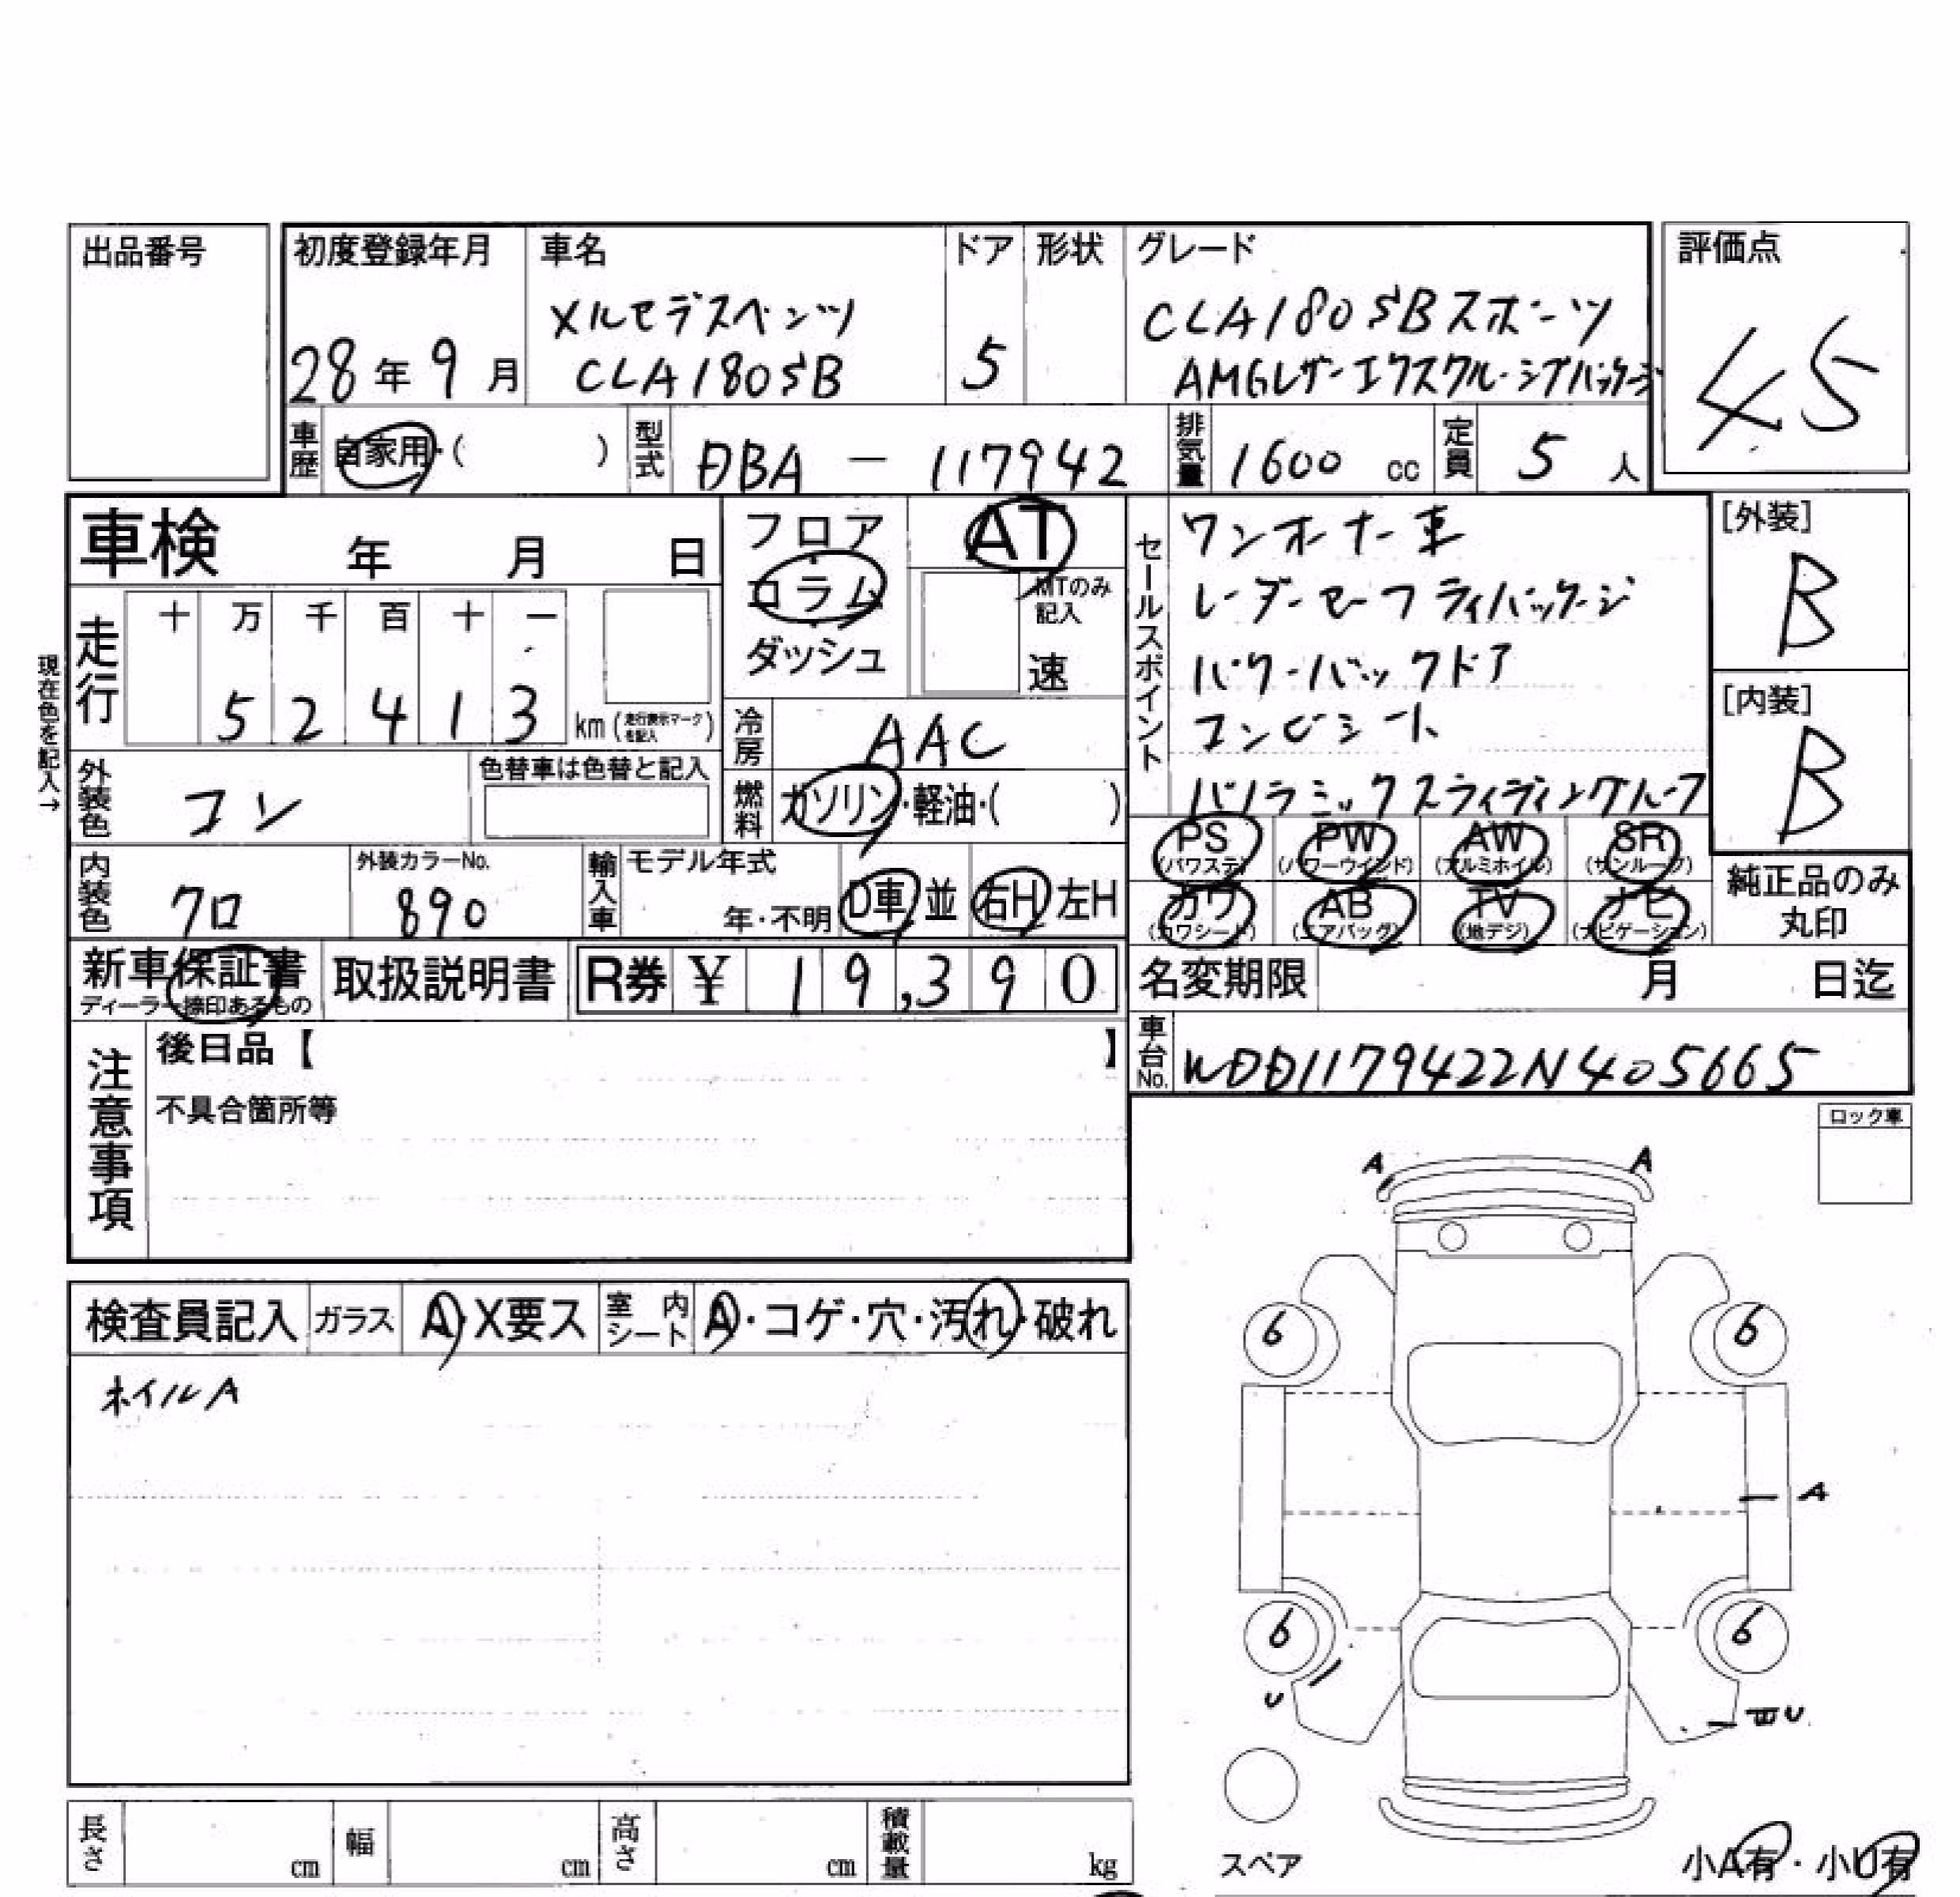 出品番号
初度登録年月 車名 ドア 形状 グレード 評価点
メルセデスベンツ CLA180SBスポーツ
28年9月 CLA180SB 5 AMGレザーエクスクルーシブパッケージ 45
車歴 自家用・( ) 型式 DBA - 117942 排気量 1600 cc 定員 5 人
車検 年 月 日
フロア・コラム・ダッシュ
AT
MTのみ記入
速
セールスポイント
ワンオーナー車
レーダーセーフティパッケージ
パワーバックドア
コンビシート
パノラミックスライディングルーフ
[外装]
B
[内装]
B
現在色を記入→
走行 十 万 千 百 十 一
5 2 4 1 3 km(走行表示マークを記入)
冷房 AAC
燃料 ガソリン・軽油・( )
外装色 コン 色替車は色替と記入
内装色 クロ 外装カラーNo. 890 輸入車 モデル年式 年・不明 D車 並 右H 左H
PS(パワステ) PW(パワーウインド) AW(アルミホイル) SR(サンルーフ)
カワ(カワシート) AB(エアバッグ) TV(地デジ) ナビ(ナビゲーション)
純正品のみ丸印
新車保証書 ディーラー捺印あるもの 取扱説明書 R券 ¥ 19,390
名変期限 月 日迄
車台No. WDD1179422N405665
注意事項
後日品【 】
不具合箇所等
ロック車
検査員記入 ガラス A・X要ス 室内シート A・コゲ・穴・汚れ・破れ
ホイルA
A A
6 6
A
6 6
U
U
スペア
小A有・小U有
長さ cm 幅 cm 高さ cm 積載量 kg